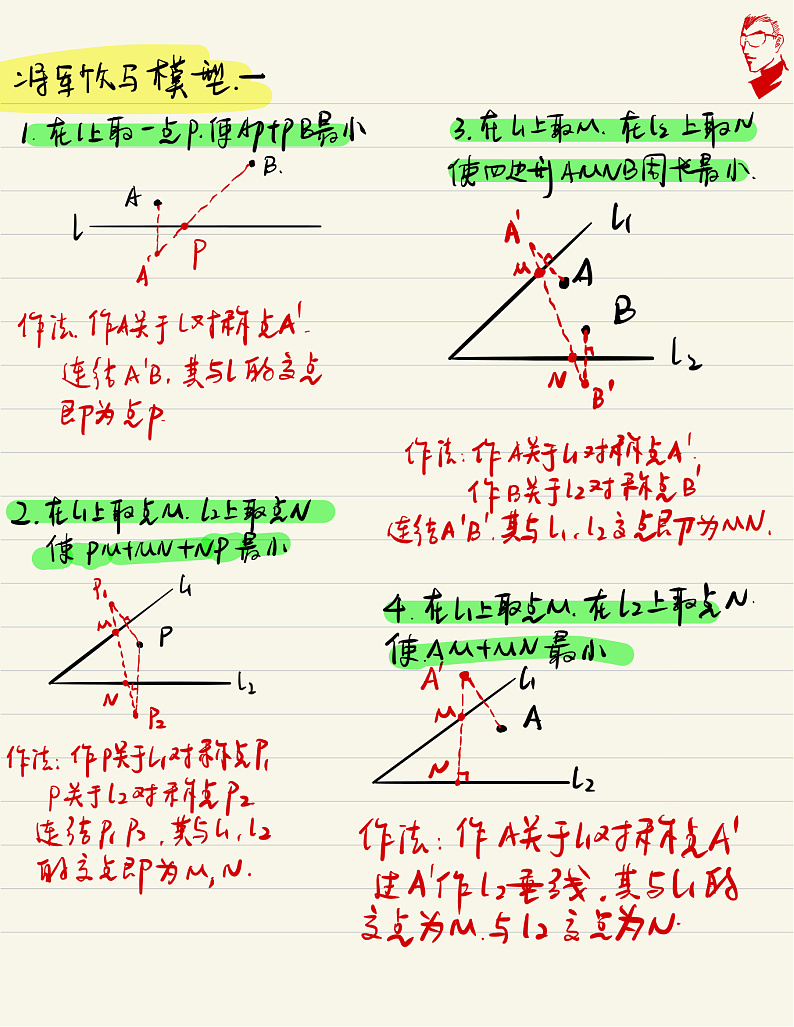 将军饮马模型.一
1.在l上取一点P.使AP+PB最小
A
B.
l
P
A'
作法.作A关于l对称点A'.
连结A'B.其与l的交点
即为点P.
2.在l1上取点M.l2上取点N
使PM+MN+NP最小
P1
l1
M
P
N
l2
P2
作法:作P关于l1对称点P1
P关于l2对称点P2
连结P1P2,其与l1,l2
的交点即为M,N.
3.在l1上取M.在l2上取N
使四边形AMNB周长最小.
A'
l1
M
A
B
l2
N
B'
作法:作A关于l1对称点A'.
作B关于l2对称点B'
连结A'B'.其与l1.l2交点即为MN.
4.在l1上取点M.在l2上取点N.
使.AM+MN最小
A'
l1
M
A
N
l2
作法:作A关于l1对称点A'
过A'作l2垂线.其与l1的
交点为M.与l2交点为N.